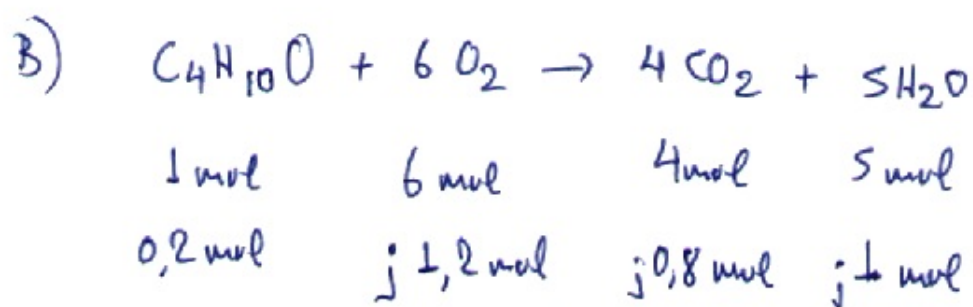 B) C₄H₁₀O + 6 O₂ → 4 CO₂ + 5H₂O
1 mol 6 mol 4 mol 5 mol
0,2 mol ; 1,2 mol ; 0,8 mol ; 1 mol